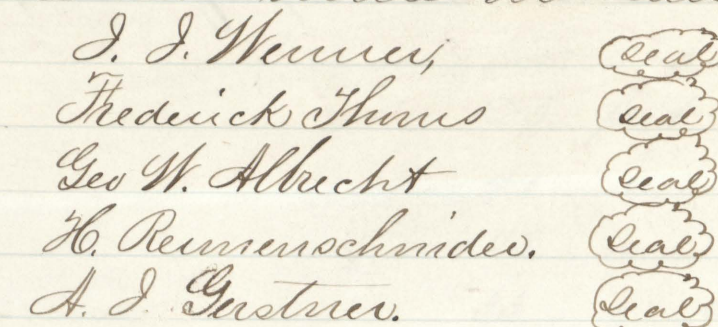 J. J. Wenner, seal
Frederick Thums seal
Geo W. Albrecht seal
H. Remenschnider. seal
A. J. Gerstner. seal